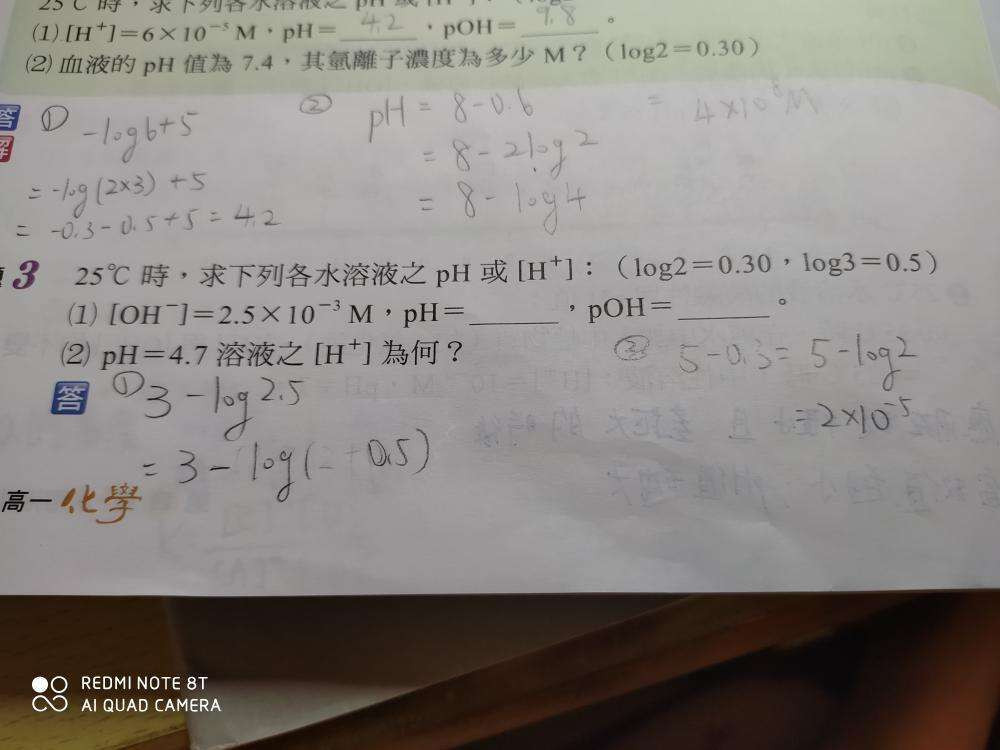 25℃ 時，求下列各水溶液之 pH 或 [H⁺]：
(1) [H⁺]＝6×10⁻⁵ M，pH＝ 4.2 ，pOH＝ 9.8 。
(2) 血液的 pH 值為 7.4，其氫離子濃度為多少 M？（log2＝0.30）
答
解
① -log6+5
= -log(2×3) +5
= -0.3-0.5+5 = 4.2
② pH = 8-0.6
= 8-2log2
= 8-log4
= 4×10⁻⁸M
3 25℃ 時，求下列各水溶液之 pH 或 [H⁺]：（log2＝0.30，log3＝0.5）
(1) [OH⁻]＝2.5×10⁻³ M，pH＝______，pOH＝______。
(2) pH＝4.7 溶液之 [H⁺] 為何？
答 ① 3-log2.5
= 3-log(2+0.5)
② 5-0.3= 5-log2
=2×10⁻⁵
高一 化學
REDMI NOTE 8T
AI QUAD CAMERA